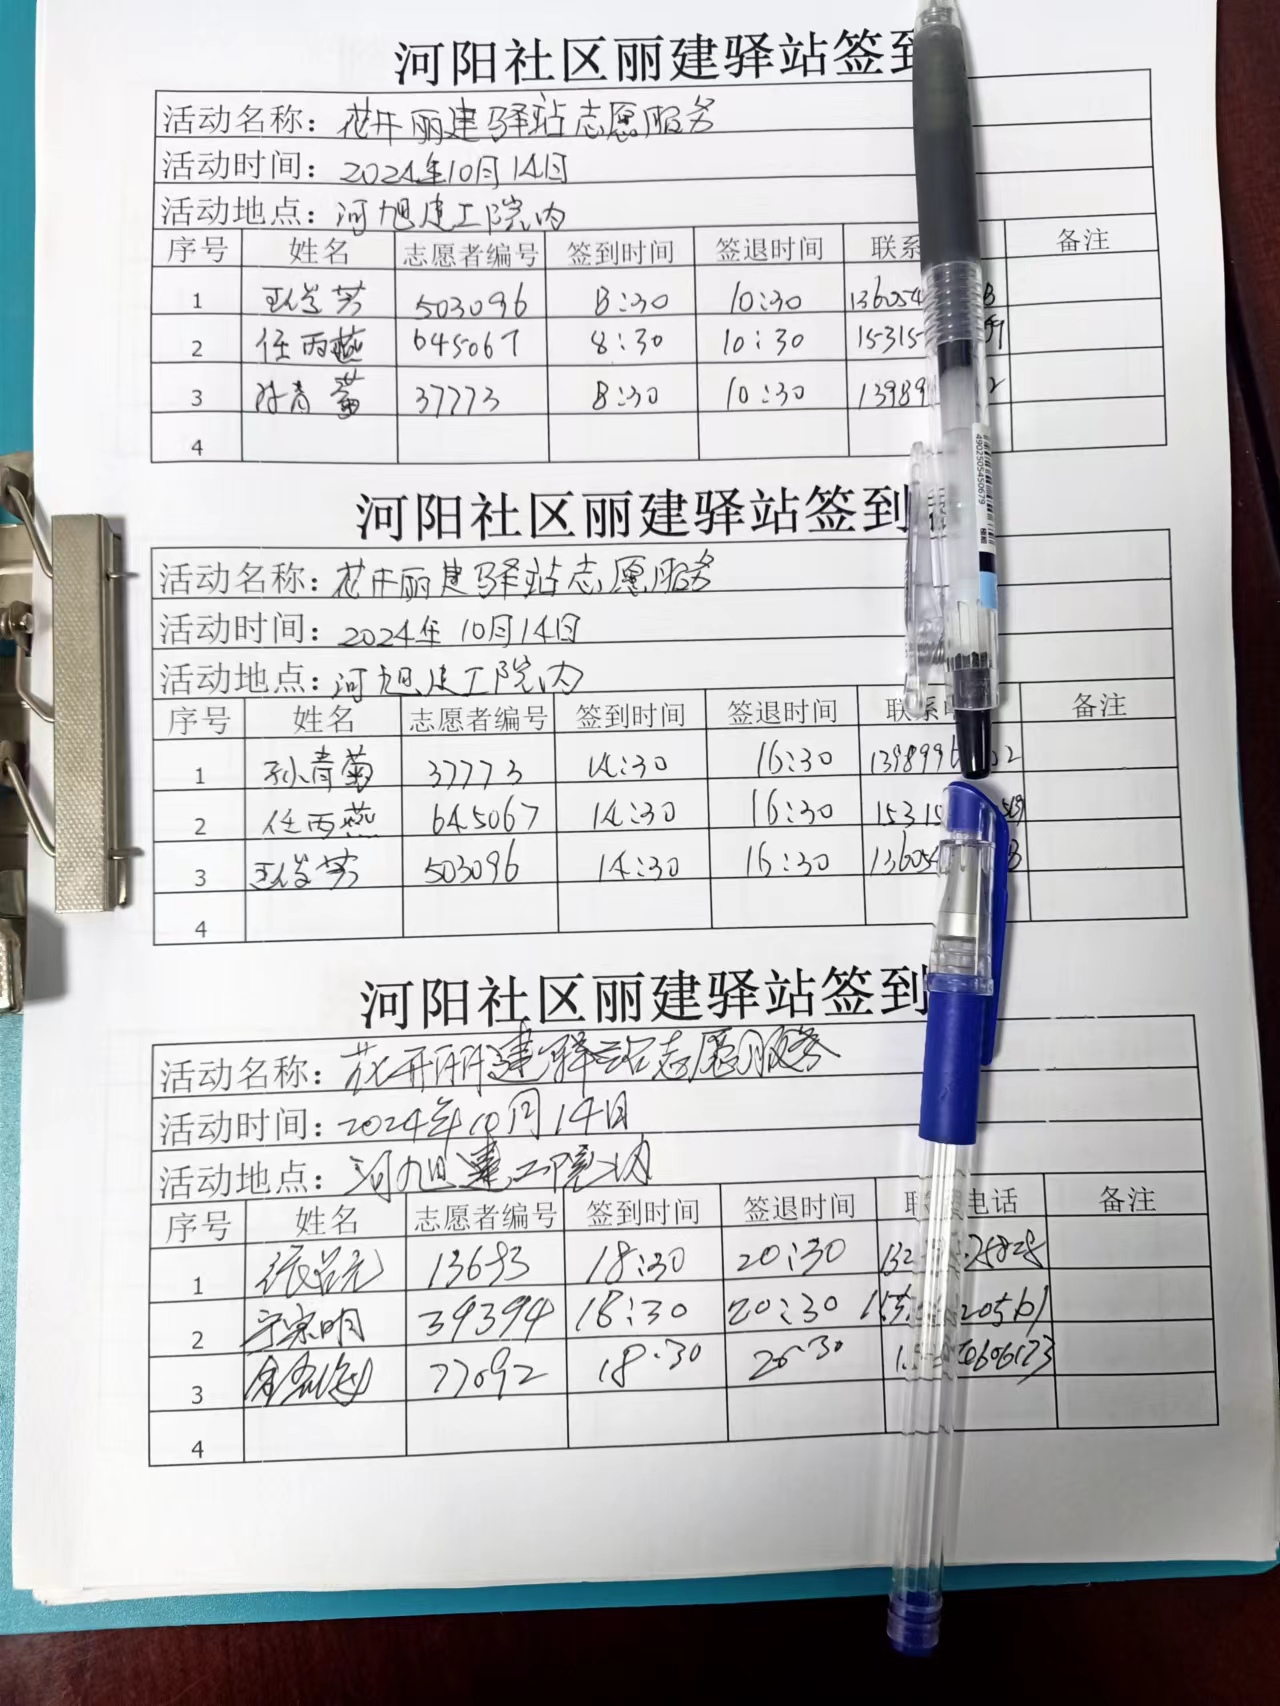 河阳社区丽建驿站签到
活动名称：花开丽建驿站志愿服务
活动时间：2024年10月14日
活动地点：河旭建工院内
序号 姓名 志愿者编号 签到时间 签退时间 联系 备注
1 王俊芳 503096 8:30 10:30 136054
2 任丙燕 645067 8:30 10:30 15315
3 孙青菊 37773 8:30 10:30 13989
4
河阳社区丽建驿站签到
活动名称：花开丽建驿站志愿服务
活动时间：2024年10月14日
活动地点：河旭建工院内
序号 姓名 志愿者编号 签到时间 签退时间 联系 备注
1 孙青菊 37773 14:30 16:30 1398996
2 任丙燕 645067 14:30 16:30 15315
3 王俊芳 503096 14:30 16:30 136054
4
河阳社区丽建驿站签到
活动名称：花开丽建驿站志愿服务
活动时间：2024年10月14日
活动地点：河旭建工院内
序号 姓名 志愿者编号 签到时间 签退时间 联 电话 备注
1 13693 18:30 20:30 132
2 39394 18:30 20:30
3 77092 18:30 20:30
4
4902505450679